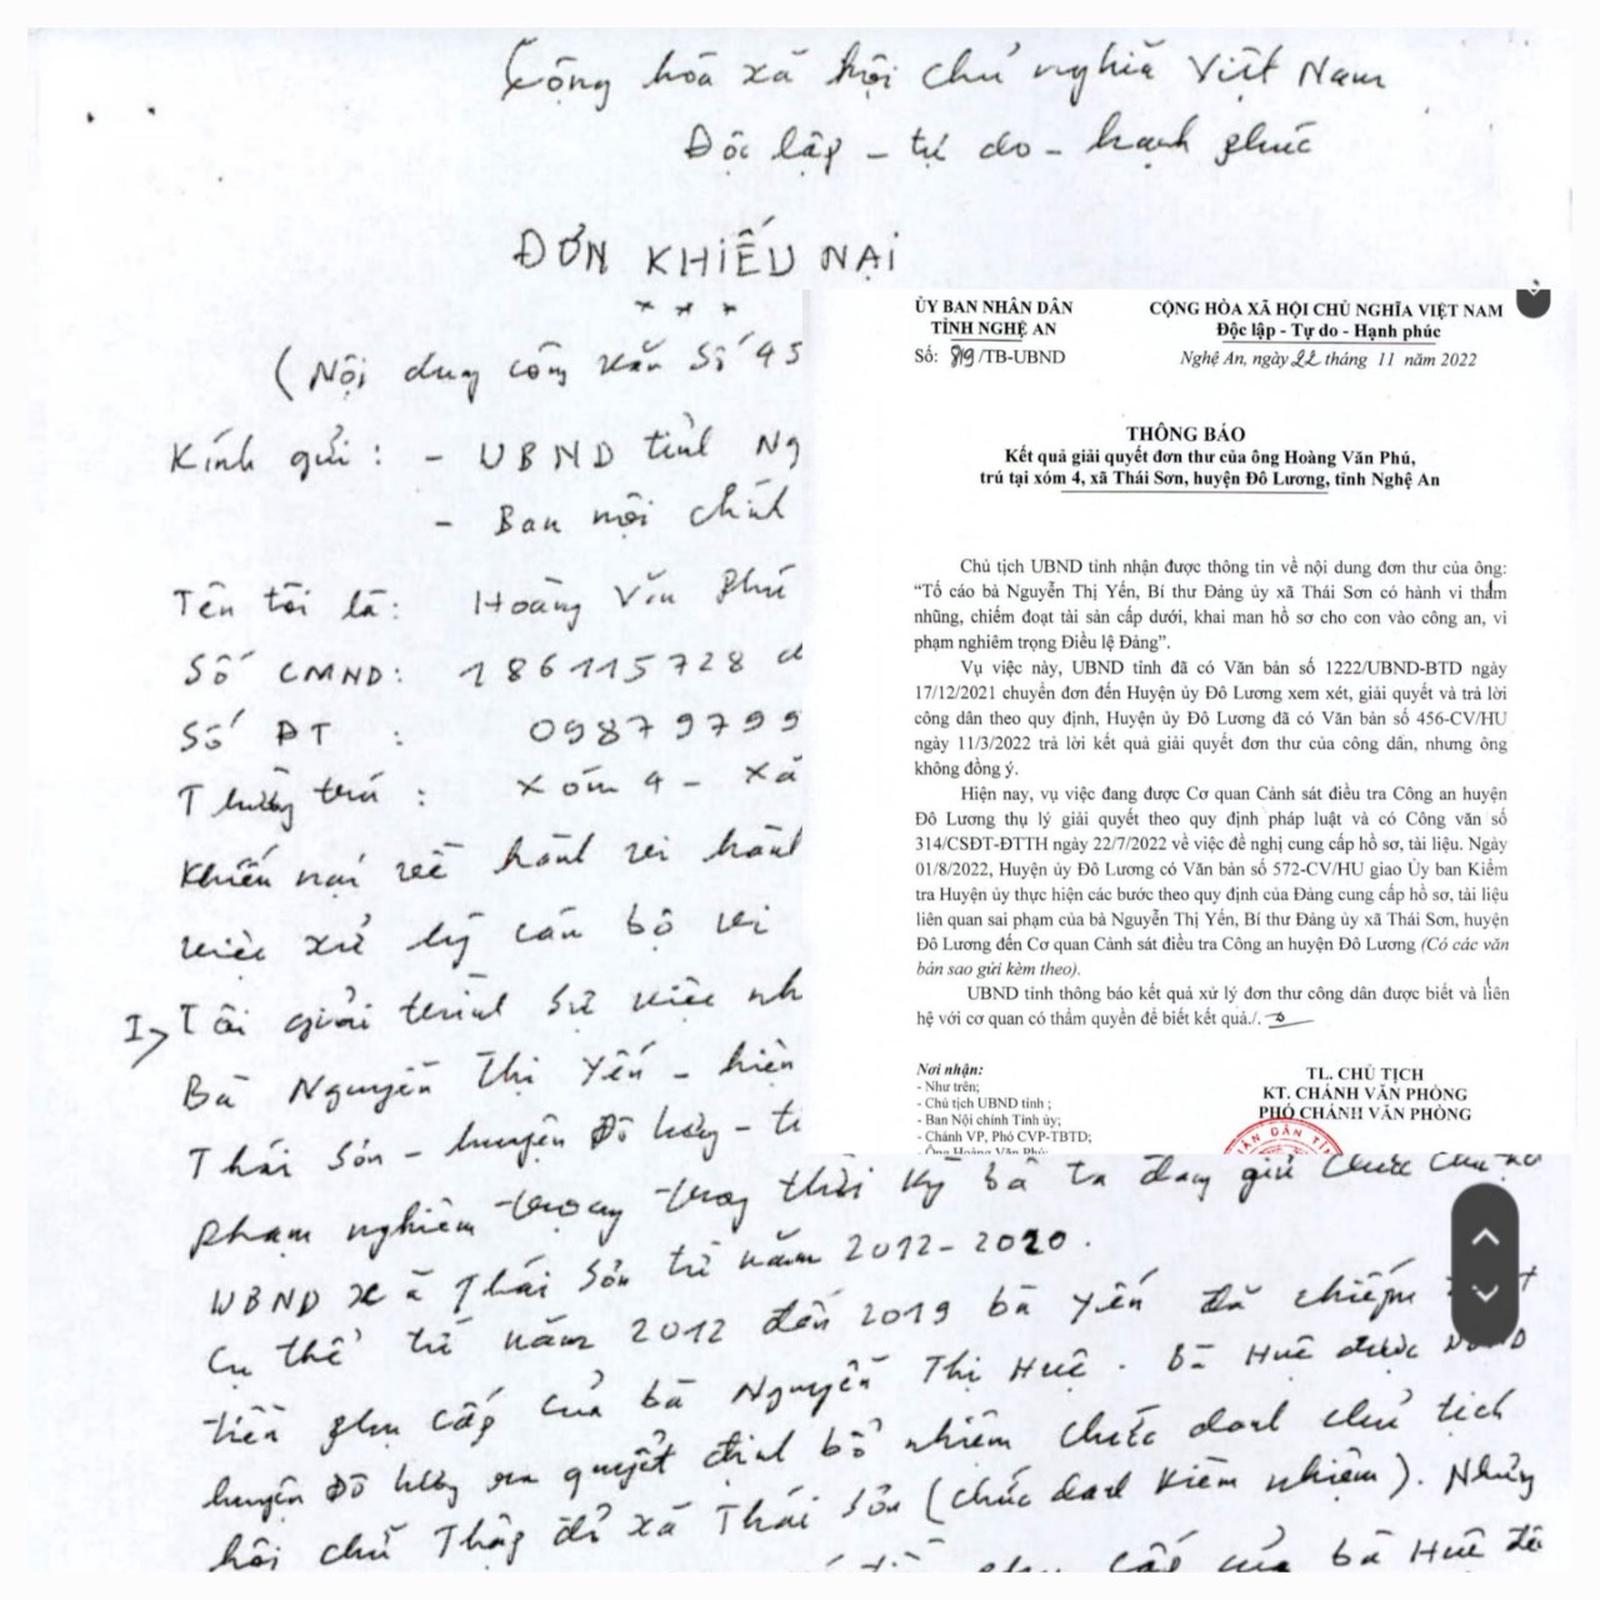 Cộng hòa xã hội chủ nghĩa Việt Nam
Độc lập - tự do - hạnh phúc
ĐƠN KHIẾU NẠI
(Nội dung công văn Số 45
Kính gửi: - UBND tỉnh Ng
- Ban nội chính
Tên tôi là: Hoàng Văn Phú
Số CMND: 186115728
Số ĐT : 09879799
Thường trú : Xóm 4 - Xã
Khiếu nại về hành vi hành
việc xử lý cán bộ vi
I> Tôi giải trình sự việc nh
Bà Nguyễn Thị Yến - hiện
Thái Sơn - huyện Đô Lương - t
phạm nghiêm trọng trong thời kỳ bà ta đang giữ chức
UBND xã Thái Sơn từ năm 2012-2020.
Cụ thể từ năm 2012 đến 2019 bà Yến đã chiếm
tiền phụ cấp của bà Nguyễn Thị Huệ. Bà Huệ được
huyện Đô Lương ra quyết định bổ nhiệm chức danh chủ tịch
hội chữ Thập đỏ xã Thái Sơn (chức danh kiêm nhiệm). Nhưng
phụ cấp của bà Huệ
ỦY BAN NHÂN DÂN
TỈNH NGHỆ AN
Số: 819/TB-UBND
CỘNG HÒA XÃ HỘI CHỦ NGHĨA VIỆT NAM
Độc lập - Tự do - Hạnh phúc
Nghệ An, ngày 22 tháng 11 năm 2022
THÔNG BÁO
Kết quả giải quyết đơn thư của ông Hoàng Văn Phú,
trú tại xóm 4, xã Thái Sơn, huyện Đô Lương, tỉnh Nghệ An
Chủ tịch UBND tỉnh nhận được thông tin về nội dung đơn thư của ông:
“Tố cáo bà Nguyễn Thị Yến, Bí thư Đảng ủy xã Thái Sơn có hành vi thẩm
nhũng, chiếm đoạt tài sản cấp dưới, khai man hồ sơ cho con vào công an, vi
phạm nghiêm trọng Điều lệ Đảng”.
Vụ việc này, UBND tỉnh đã có Văn bản số 1222/UBND-BTD ngày
17/12/2021 chuyển đơn đến Huyện ủy Đô Lương xem xét, giải quyết và trả lời
công dân theo quy định, Huyện ủy Đô Lương đã có Văn bản số 456-CV/HU
ngày 11/3/2022 trả lời kết quả giải quyết đơn thư của công dân, nhưng ông
không đồng ý.
Hiện nay, vụ việc đang được Cơ quan Cảnh sát điều tra Công an huyện
Đô Lương thụ lý giải quyết theo quy định pháp luật và có Công văn số
314/CSĐT-ĐTTH ngày 22/7/2022 về việc đề nghị cung cấp hồ sơ, tài liệu. Ngày
01/8/2022, Huyện ủy Đô Lương có Văn bản số 572-CV/HU giao Ủy ban Kiểm
tra Huyện ủy thực hiện các bước theo quy định của Đảng cung cấp hồ sơ, tài liệu
liên quan sai phạm của bà Nguyễn Thị Yến, Bí thư Đảng ủy xã Thái Sơn, huyện
Đô Lương đến Cơ quan Cảnh sát điều tra Công an huyện Đô Lương (Có các văn
bản sao gửi kèm theo).
UBND tỉnh thông báo kết quả xử lý đơn thư công dân được biết và liên
hệ với cơ quan có thẩm quyền để biết kết quả./.
Nơi nhận:
- Như trên;
- Chủ tịch UBND tỉnh ;
- Ban Nội chính Tỉnh ủy;
- Chánh VP, Phó CVP-TBTD;
- Ông Hoàng Văn Phú;
TL. CHỦ TỊCH
KT. CHÁNH VĂN PHÒNG
PHÓ CHÁNH VĂN PHÒNG